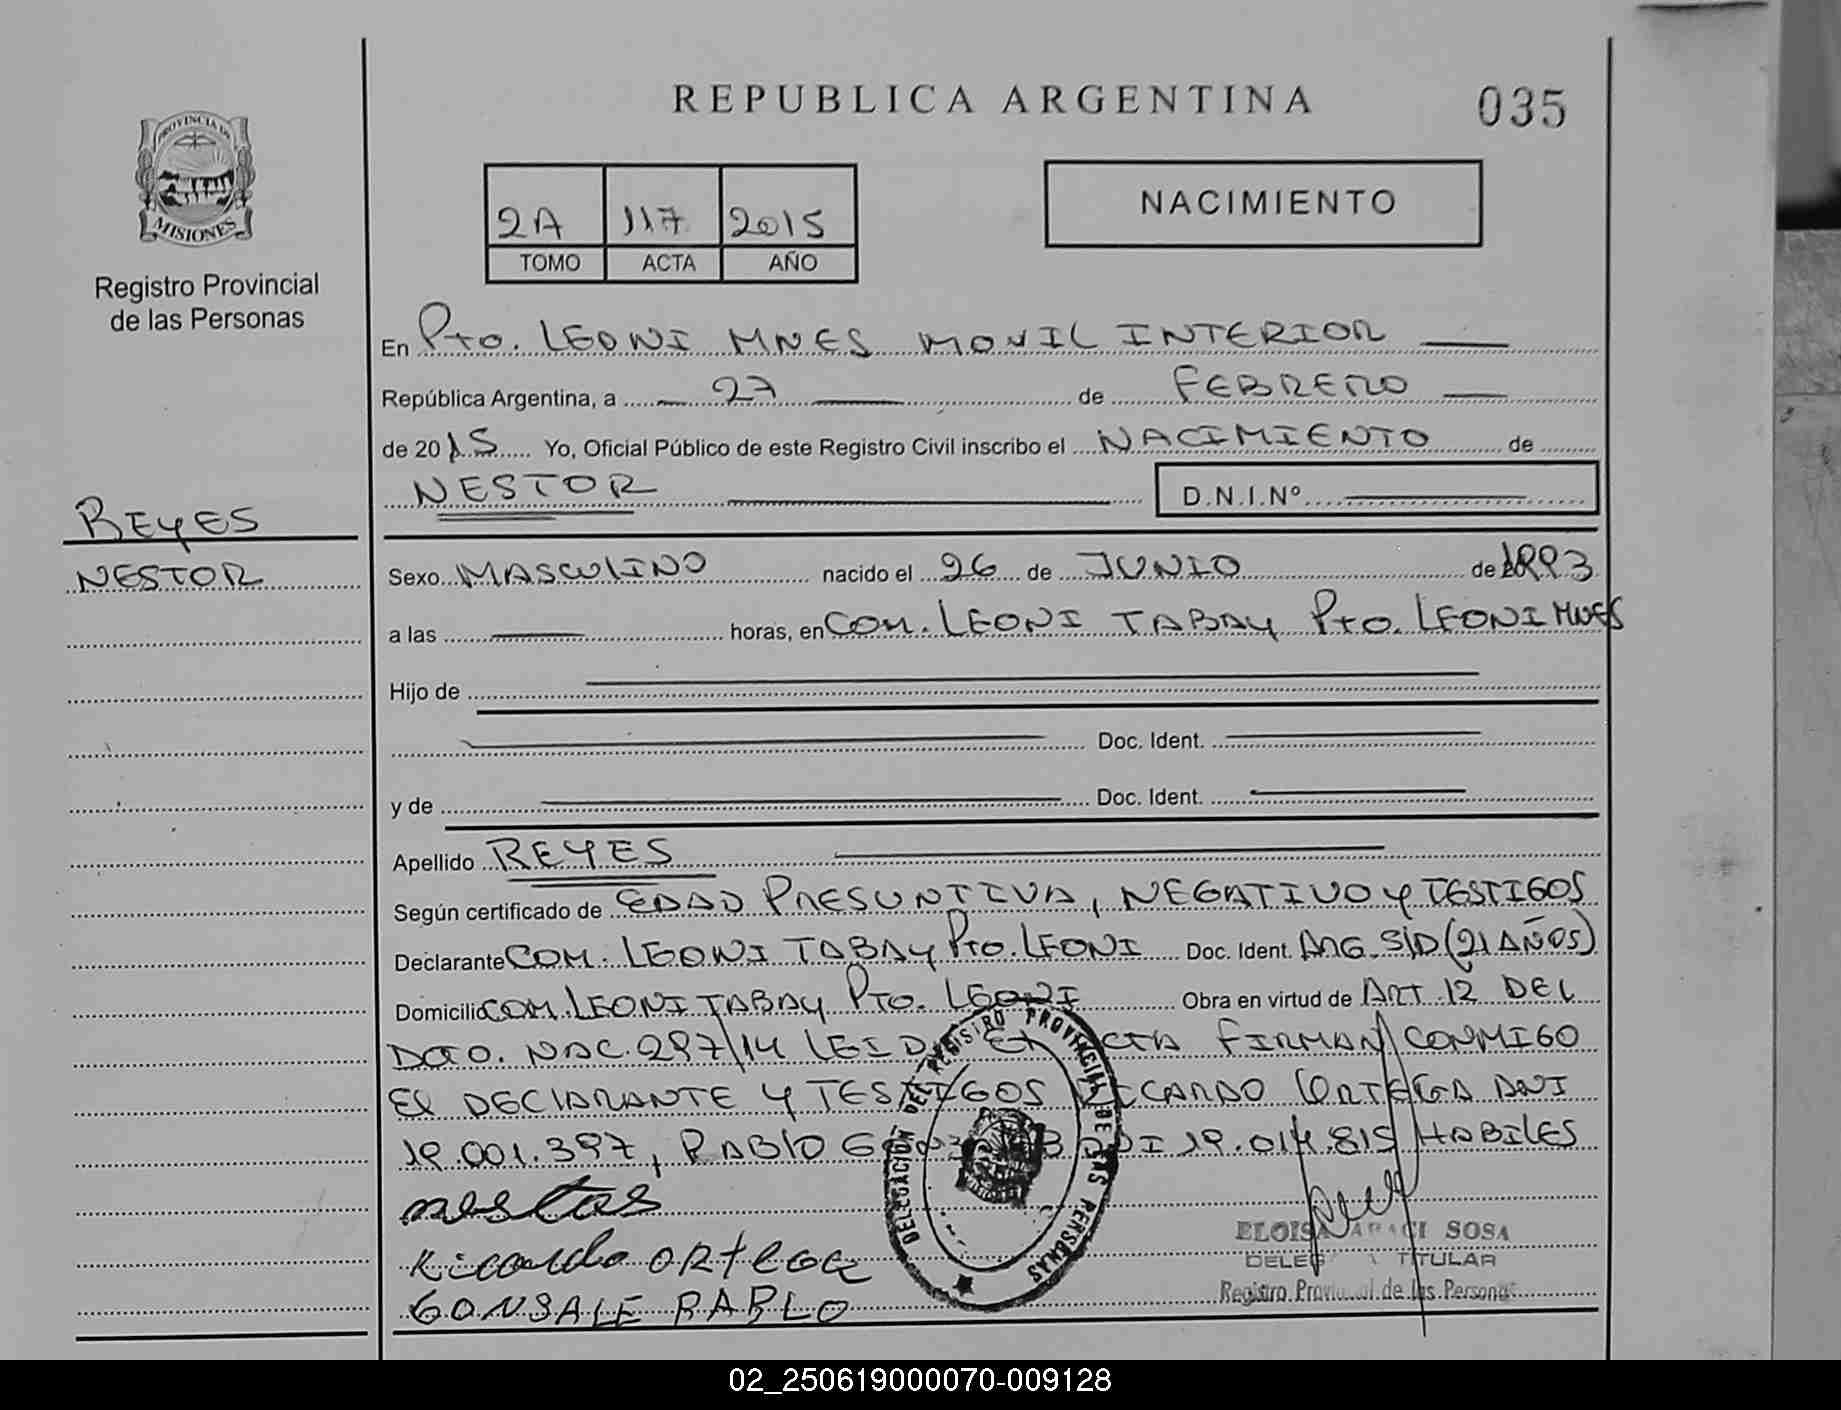 REPUBLICA ARGENTINA
035
PROVINCIA DE
MISIONES
Registro Provincial
de las Personas
2A 117 2015
TOMO ACTA AÑO
NACIMIENTO
En Pto. LEONI MNES MOVIL INTERIOR
República Argentina, a 27 de FEBRERO
de 2015 Yo, Oficial Público de este Registro Civil inscribo el NACIMIENTO de
NESTOR D.N.I.Nº
REYES
NESTOR
Sexo MASCULINO nacido el 26 de JUNIO de 1993
a las horas, en COM. LEONI TABAY Pto. LEONI MNES
Hijo de
Doc. Ident.
y de Doc. Ident.
Apellido REYES
Según certificado de EDAD PRESUNTIVA, NEGATIVO Y TESTIGOS
Declarante COM. LEONI TABAY Pto. LEONI Doc. Ident. ARG. S/D (21 AÑOS)
Domicilio COM. LEONI TABAY PTO. LEONI Obra en virtud de ART. 12 DEL
DCTO. NAC. 297/14 LEIDA EL ACTA FIRMAN CONMIGO
El DECLARANTE Y TESTIGOS RICARDO ORTEGA DNI
19.001.397, PABLO 19.014.815 HABILES
nestas
Ricardo ORTEGA
GONSALE PABLO
DELEGACION DEL REGISTRO PROVINCIAL DE LAS PERSONAS
ELOISA ARACI SOSA
DELEGADA TITULAR
Registro Provincial de las Personas
02_250619000070-009128